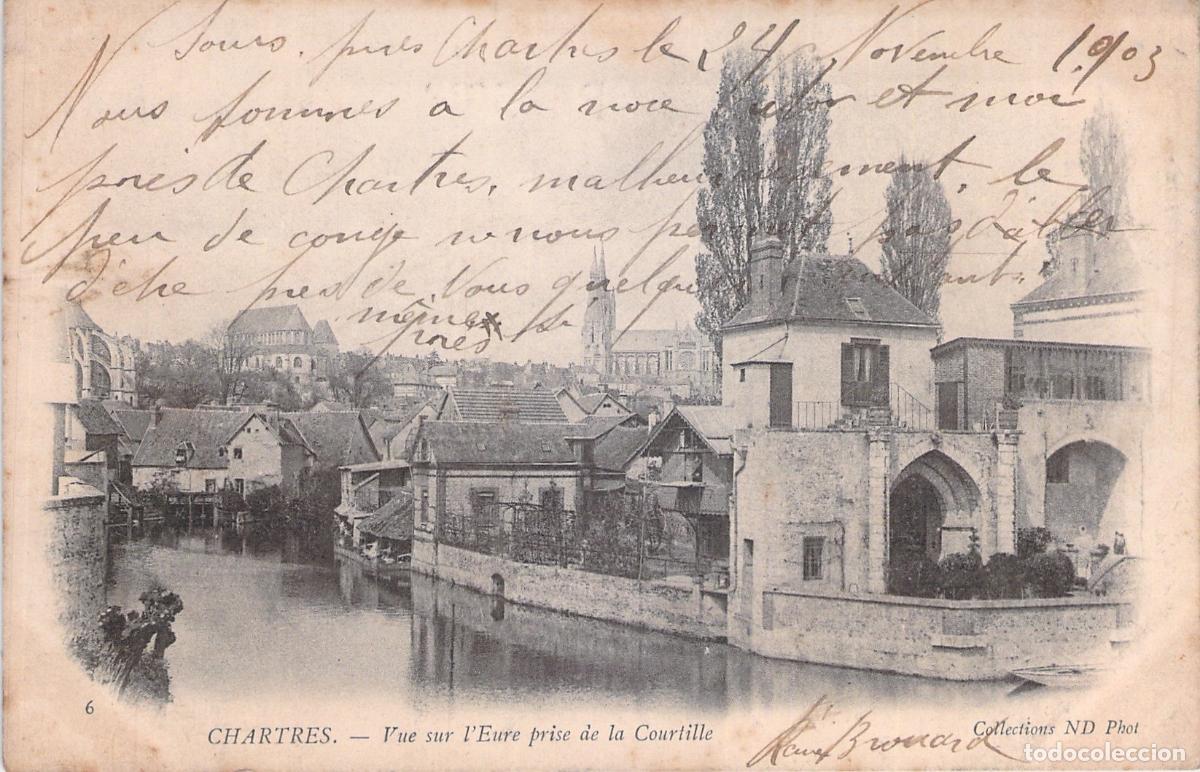 Sours. près Chartres le 24 Novembre 1903
Nous sommes a la noce et moi
près de Chartres, malheureusement, le
peu de congé ne nous permet pas d'aller
près de Vous quelques
même
près
6
CHARTRES. — Vue sur l'Eure prise de la Courtille
Brouard
Collections ND Phot
todocoleccion